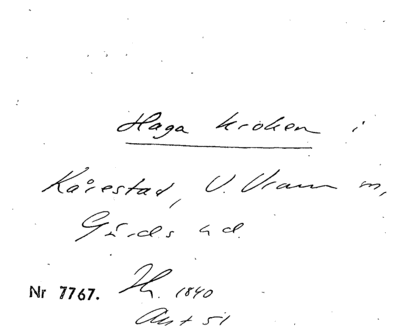 Haga kroken i
Kårestad, V. Vram m,
Gärds hd.
Nr 7767. Hz. 1840
Ant 51